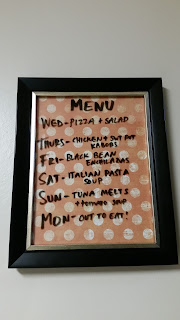 MENU
WED- PIZZA + SALAD
THURS- CHICKEN + SWT POT
KABOBS
FRI- BLACK BEAN
ENCHILADAS
SAT- ITALIAN PASTA
SOUP
SUN- TUNA MELTS
+ TOMATO SOUP
MON- OUT TO EAT!